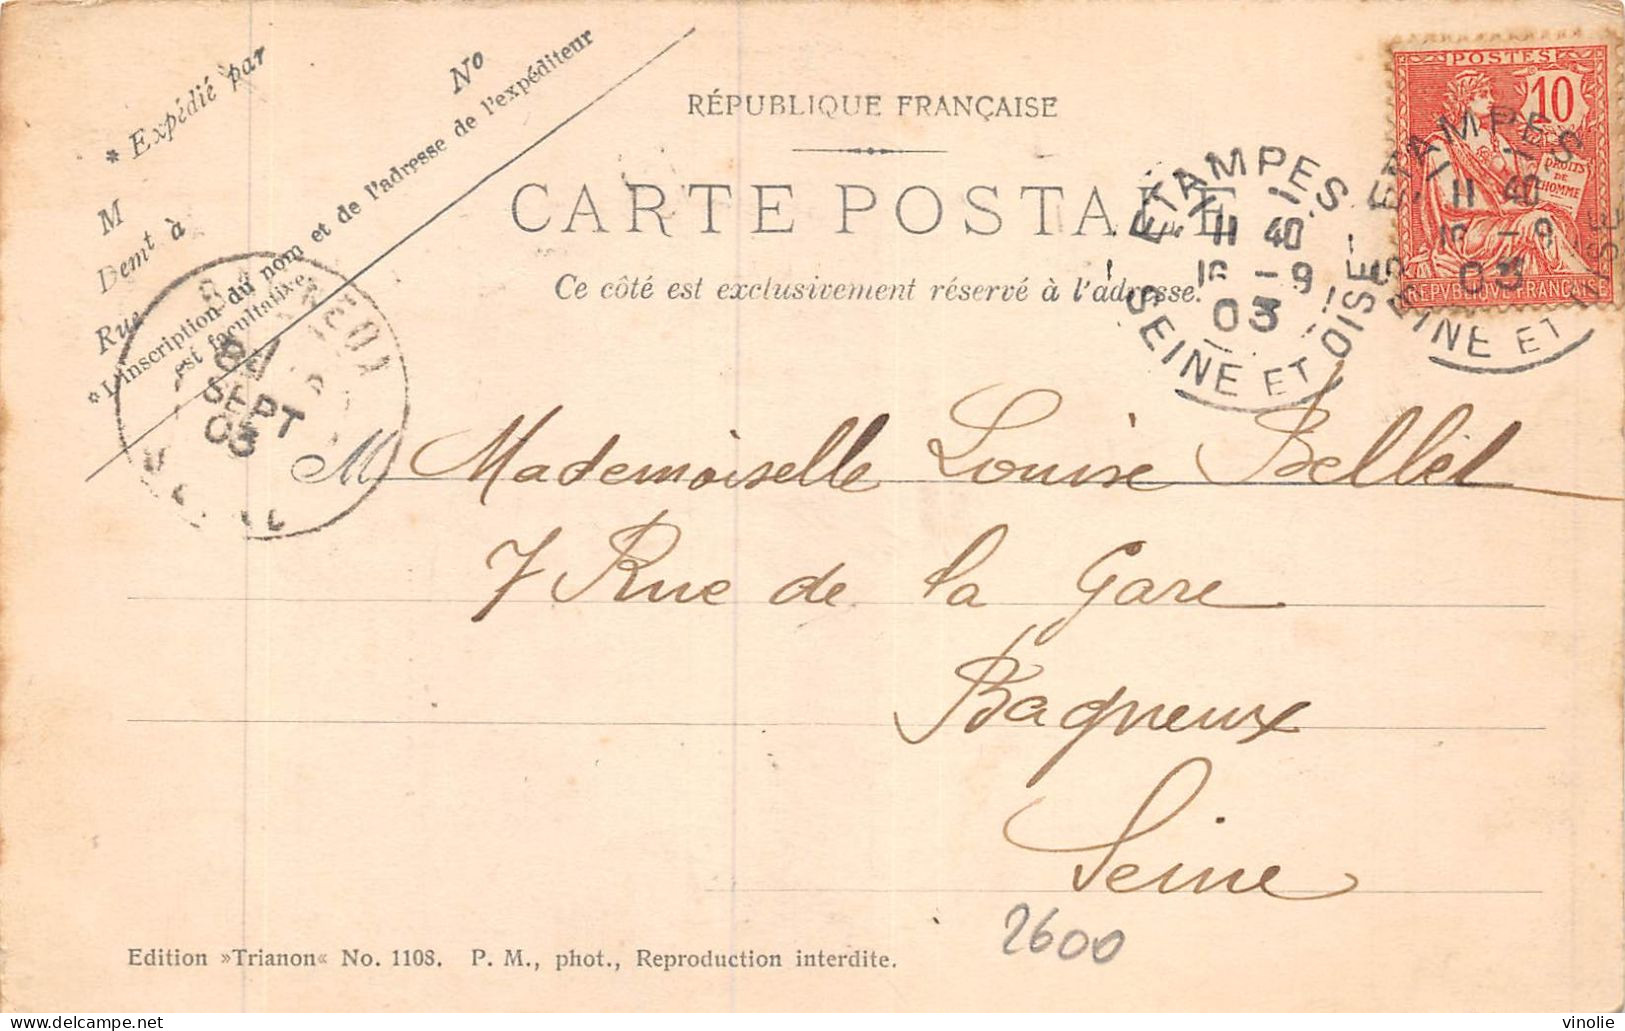 * Expédié par
M
Demt à
Rue
No
* L'inscription du nom et de l'adresse de l'expéditeur
est facultative.
RÉPUBLIQUE FRANÇAISE
CARTE POSTALE
Ce côté est exclusivement réservé à l'adresse.
POSTES
10
DROITS
DE
L'HOMME
REPUBLIQUE FRANÇAISE
ETAMPES
11 40
16 - 9
03
SEINE ET OISE
ETAMPES
11 40
16 - 9
03
SEINE ET OISE
SEPT
03
M Mademoiselle Louise Bellet
7 Rue de la Gare
Bagneux
Seine
2600
Edition »Trianon« No. 1108. P. M., phot., Reproduction interdite.
vinolie